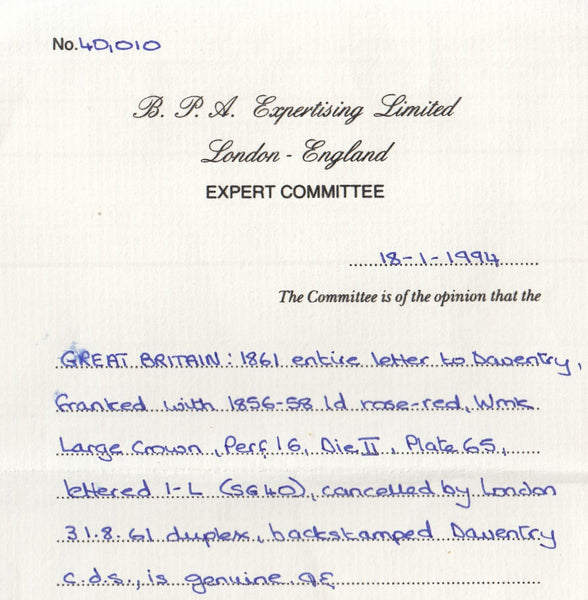 No. 40,010
B. P. A. Expertising Limited
London - England
EXPERT COMMITTEE
18-1-1994
The Committee is of the opinion that the
GREAT BRITAIN: 1861 entire letter to Daventry,
franked with 1856-58 1d rose-red, Wmk
Large Crown, Perf 16, Die II, Plate 65,
lettered I-L (SG40), cancelled by London
31.8.61 duplex, backstamped Daventry
c.d.s., is genuine.